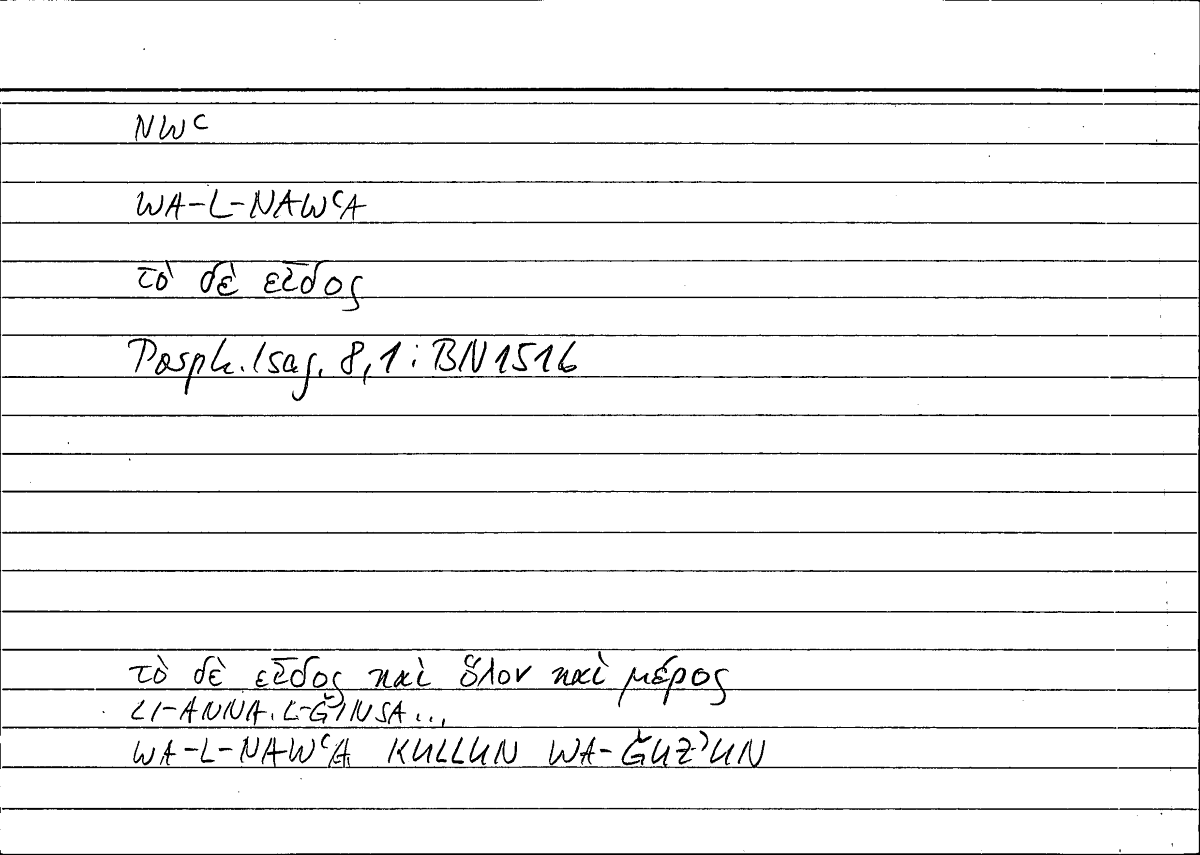 NWʿ
WA-L-NAWʿA
τὸ δὲ εἶδος
Porph. Isag. 8,1 : BN1516
τὸ δὲ εἶδος καὶ ὅλον καὶ μέρος
LI-ANNA. L-ǦINSA...
WA-L-NAWʿA. KULLUN WA-ǦUZʾUN